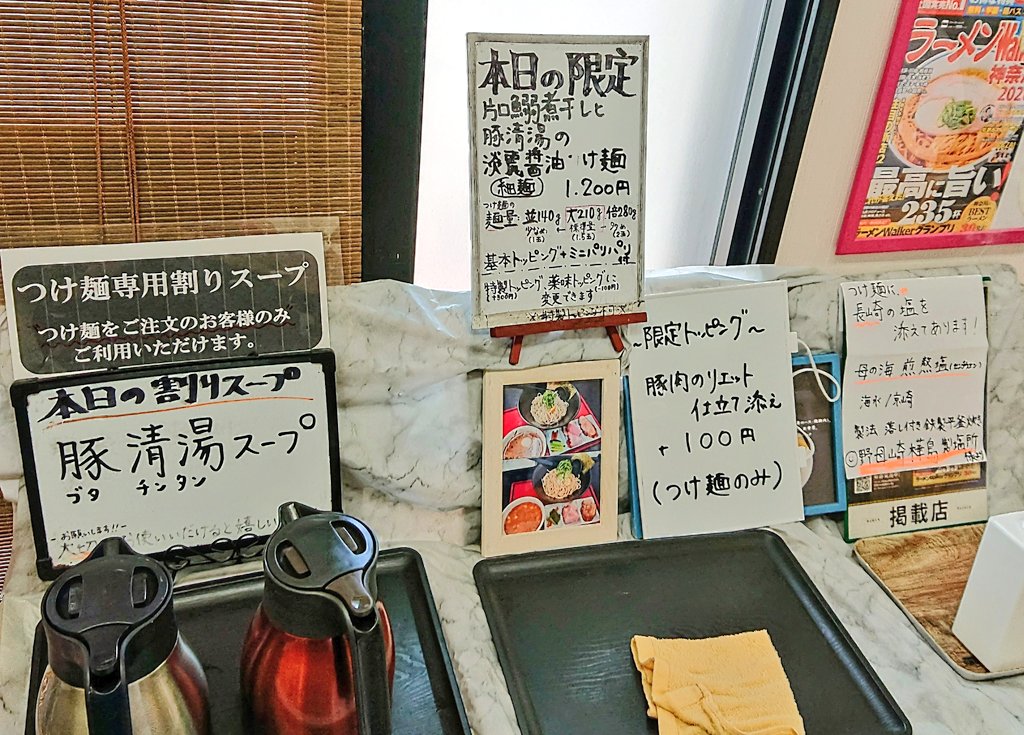 つけ麺専用割りスープ
つけ麺をご注文のお客様のみ
ご利用いただけます。
本日の割りスープ
豚清湯スープ
ブタ チンタン
-お願いします!!-
使いいただけると嬉しい
本日の限定
片口鰯煮干しと
豚清湯の
淡麗醤油つけ麺
細麺 1.200円
つけ麺の
麺量 並140g 大210g 倍280g
少なめ 標準量 多め
(1玉) (1.5玉) (2玉)
基本トッピング+ミニパリパリ
特製トッピング、薬味トッピングに
変更できます
~限定トッピング~
豚肉のリエット
仕立て添え
+100円
(つけ麺のみ)
つけ麺に
長崎の塩を
添えてあります!
母の海 煎熬塩
海水/京崎
製法 落し付き鉄製平釜炊き
◎野母崎樺島製塩所
掲載店
ラーメンWal
神奈
202
最高に旨い
235杯
BEST
ラーメン
ラーメンWalkerグランプリ